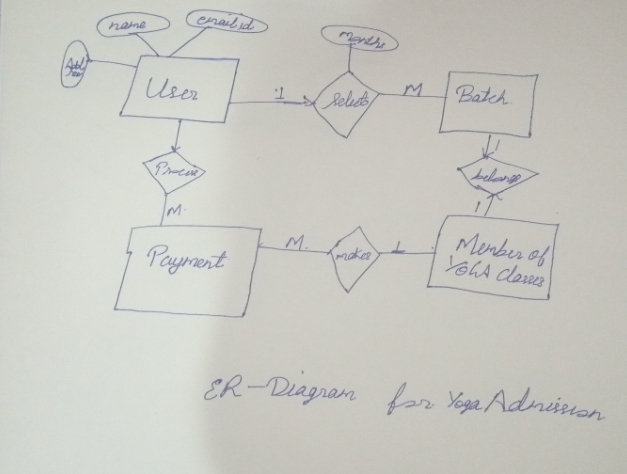 name
email.id
Months
User
1
Selects
M
Batch
1
M.
1
Payment
M.
makes
1
Member of
YOGA Classes
ER-Diagram for Yoga Admission